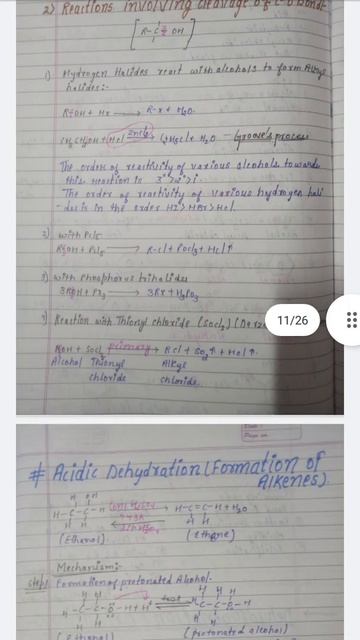 2) Reactions involving cleavage of C-O Bond:-
R-C-OH
1) Hydrogen Halides react with alcohols to form Alkyl
halides:-
ROH + Hx → R-x + H2O.
CH3CH2OH + HCl ZnCl2 C2H5Cl + H2O - Groove's process
The order of reactivity of various alcohols towards
this reaction is 3°>2°>1°
The order of reactivity of various hydrogen hali
des is in the order HI>HBr>HCl.
2) with PCl5
ROH + PCl5 → R-Cl + POCl3 + HCl↑
3) with Phosphorus trihalides
3ROH + Px3 → 3Rx + H3PO3
4) Reaction with Thionyl chloride (SOCl2)
11/26
ROH + SOCl2 → RCl + SO2↑ + HCl↑
Alcohol Thionyl Alkyl
chloride chloride
Date :
Page no.
# Acidic Dehydration (Formation of
Alkenes).
H OH
H-C-C-H Conc. H2SO4 → H-C=C-H + H2O
H H 443K H H
(Ethanol) (Ethene)
Mechanism:-
Step 1 Formation of protonated Alcohol-
H H H H H
H-C-C-O-H + H+ fast H-C-C-O-H
H H H H
(Ethanol) (protonated alcohol)